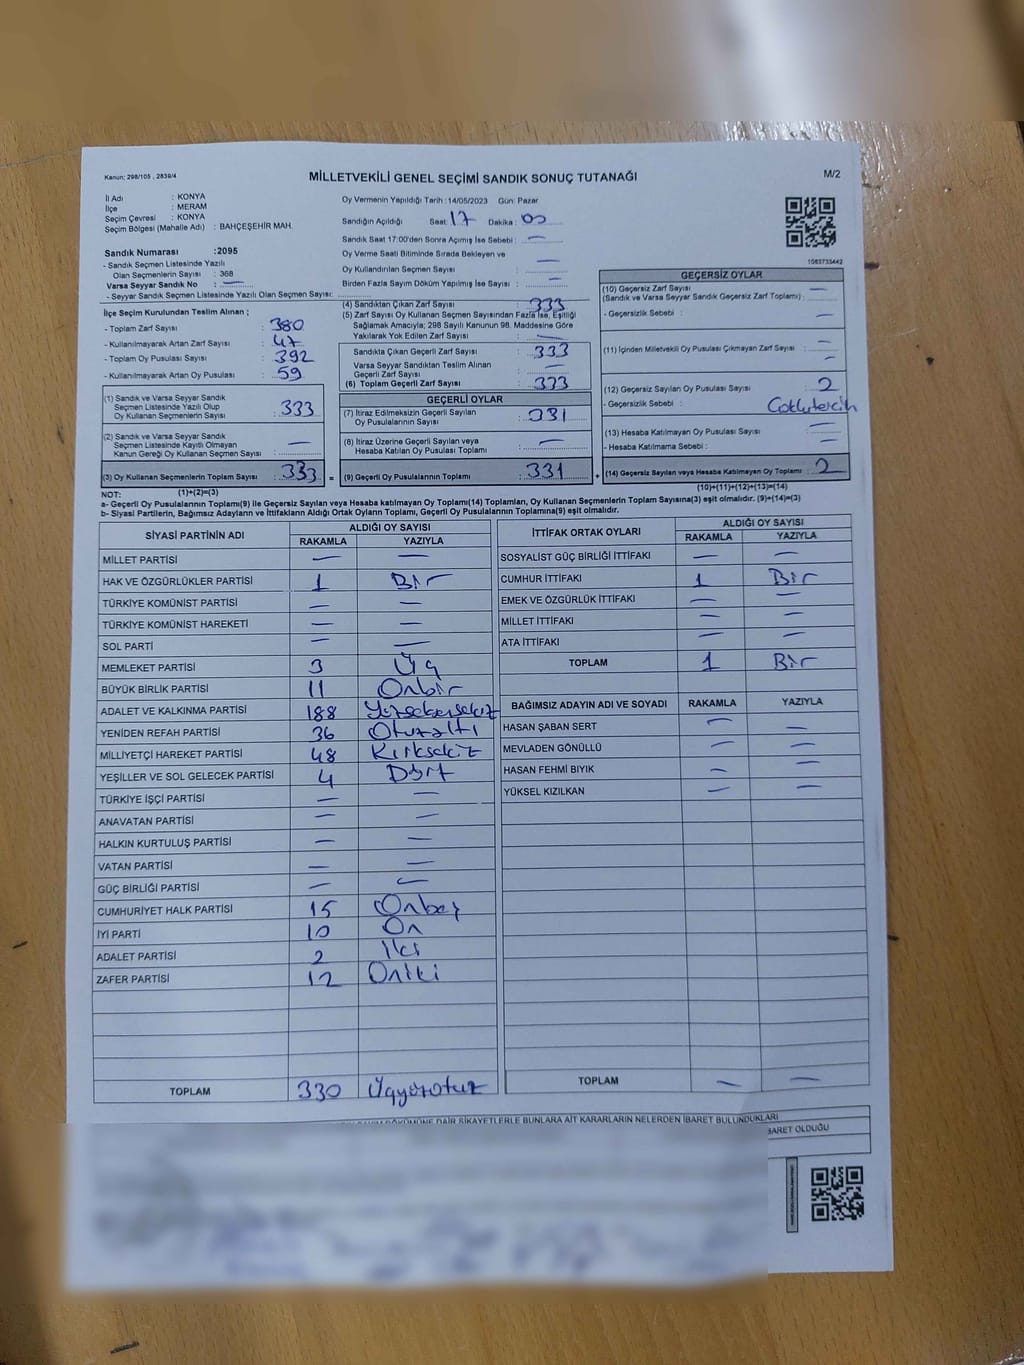 Kanun; 298/105 , 2839/4
MİLLETVEKİLİ GENEL SEÇİMİ SANDIK SONUÇ TUTANAĞI
M/2
İl Adı : KONYA
İlçe : MERAM
Seçim Çevresi : KONYA
Seçim Bölgesi (Mahalle Adı) : BAHÇEŞEHİR MAH.
Sandık Numarası :2095
- Sandık Seçmen Listesinde Yazılı
Olan Seçmenlerin Sayısı : 368
Varsa Seyyar Sandık No : —
- Seyyar Sandık Seçmen Listesinde Yazılı Olan Seçmen Sayısı:
İlçe Seçim Kurulundan Teslim Alınan ;
- Toplam Zarf Sayısı : 380
- Kullanılmayarak Artan Zarf Sayısı : 47
- Toplam Oy Pusulası Sayısı : 392
- Kullanılmayarak Artan Oy Pusulası : 59
(1) Sandık ve Varsa Seyyar Sandık
Seçmen Listesinde Yazılı Olup
Oy Kullanan Seçmenlerin Sayısı : 333
(2) Sandık ve Varsa Seyyar Sandık
Seçmen Listesinde Kayıtlı Olmayan
Kanun Gereği Oy Kullanan Seçmen Sayısı : —
(3) Oy Kullanan Seçmenlerin Toplam Sayısı : 333 =
(1)+(2)=(3)
Oy Vermenin Yapıldığı Tarih :14/05/2023 Gün: Pazar
Sandığın Açıldığı Saat: 17 Dakika : 00
Sandık Saat 17:00'den Sonra Açımış İse Sebebi : —
Oy Verme Saati Bitiminde Sırada Bekleyen ve
Oy Kullandırılan Seçmen Sayısı : —
Birden Fazla Sayım Döküm Yapılmış İse Sayısı : —
(4) Sandıktan Çıkan Zarf Sayısı : 333
(5) Zarf Sayısı Oy Kullanan Seçmen Sayısından Fazla İse, Eşitliği
Sağlamak Amacıyla; 298 Sayılı Kanunun 98. Maddesine Göre
Yakılarak Yok Edilen Zarf Sayısı : —
Sandıkta Çıkan Geçerli Zarf Sayısı : 333
Varsa Seyyar Sandıktan Teslim Alınan
Geçerli Zarf Sayısı : —
(6) Toplam Geçerli Zarf Sayısı : 333
GEÇERLİ OYLAR
(7) İtiraz Edilmeksizin Geçerli Sayılan
Oy Pusulalarının Sayısı : 331
(8) İtiraz Üzerine Geçerli Sayılan veya
Hesaba Katılan Oy Pusulası Toplamı : —
(9) Geçerli Oy Pusulalarının Toplamı : 331 +
1083733442
GEÇERSİZ OYLAR
(10) Geçersiz Zarf Sayısı : —
(Sandık ve Varsa Seyyar Sandık Geçersiz Zarf Toplamı)
- Geçersizlik Sebebi : —
(11) İçinden Milletvekili Oy Pusulası Çıkmayan Zarf Sayısı : —
(12) Geçersiz Sayılan Oy Pusulası Sayısı : 2
- Geçersizlik Sebebi : Çoklutercih
(13) Hesaba Katılmayan Oy Pusulası Sayısı : —
- Hesaba Katılmama Sebebi : —
(14) Geçersiz Sayılan veya Hesaba Katılmayan Oy Toplamı : 2
(10)+(11)+(12)+(13)=(14)
NOT:
a- Geçerli Oy Pusulalarının Toplamı(9) ile Geçersiz Sayılan veya Hesaba katılmayan Oy Toplamı(14) Toplamları, Oy Kullanan Seçmenlerin Toplam Sayısına(3) eşit olmalıdır. (9)+(14)=(3)
b- Siyasi Partilerin, Bağımsız Adayların ve İttifakların Aldığı Ortak Oyların Toplamı, Geçerli Oy Pusulalarının Toplamına(9) eşit olmalıdır.
SİYASİ PARTİNİN ADI ALDIĞI OY SAYISI
RAKAMLA YAZIYLA
MİLLET PARTİSİ — —
HAK VE ÖZGÜRLÜKLER PARTİSİ 1 Bir
TÜRKİYE KOMÜNİST PARTİSİ — —
TÜRKİYE KOMÜNİST HAREKETİ — —
SOL PARTİ — —
MEMLEKET PARTİSİ 3 Üç
BÜYÜK BİRLİK PARTİSİ 11 Onbir
ADALET VE KALKINMA PARTİSİ 188 Yüzseksensekiz
YENİDEN REFAH PARTİSİ 36 Otuzaltı
MİLLİYETÇİ HAREKET PARTİSİ 48 Kırksekiz
YEŞİLLER VE SOL GELECEK PARTİSİ 4 Dört
TÜRKİYE İŞÇİ PARTİSİ — —
ANAVATAN PARTİSİ — —
HALKIN KURTULUŞ PARTİSİ — —
VATAN PARTİSİ — —
GÜÇ BİRLİĞİ PARTİSİ — —
CUMHURİYET HALK PARTİSİ 15 Onbeş
İYİ PARTİ 10 On
ADALET PARTİSİ 2 İki
ZAFER PARTİSİ 12 Oniki
TOPLAM 330 Üçyüzotuz
İTTİFAK ORTAK OYLARI ALDIĞI OY SAYISI
RAKAMLA YAZIYLA
SOSYALİST GÜÇ BİRLİĞİ İTTİFAKI — —
CUMHUR İTTİFAKI 1 Bir
EMEK VE ÖZGÜRLÜK İTTİFAKI — —
MİLLET İTTİFAKI — —
ATA İTTİFAKI — —
TOPLAM 1 Bir
BAĞIMSIZ ADAYIN ADI VE SOYADI RAKAMLA YAZIYLA
HASAN ŞABAN SERT — —
MEVLADEN GÖNÜLLÜ — —
HASAN FEHMİ BIYIK — —
YÜKSEL KIZILKAN — —
TOPLAM — —
DÖKÜMÜNE DAİR ŞİKAYETLERLE BUNLARA AİT KARARLARIN NELERDEN İBARET BULUNDUKLARI
BARET OLDUĞU